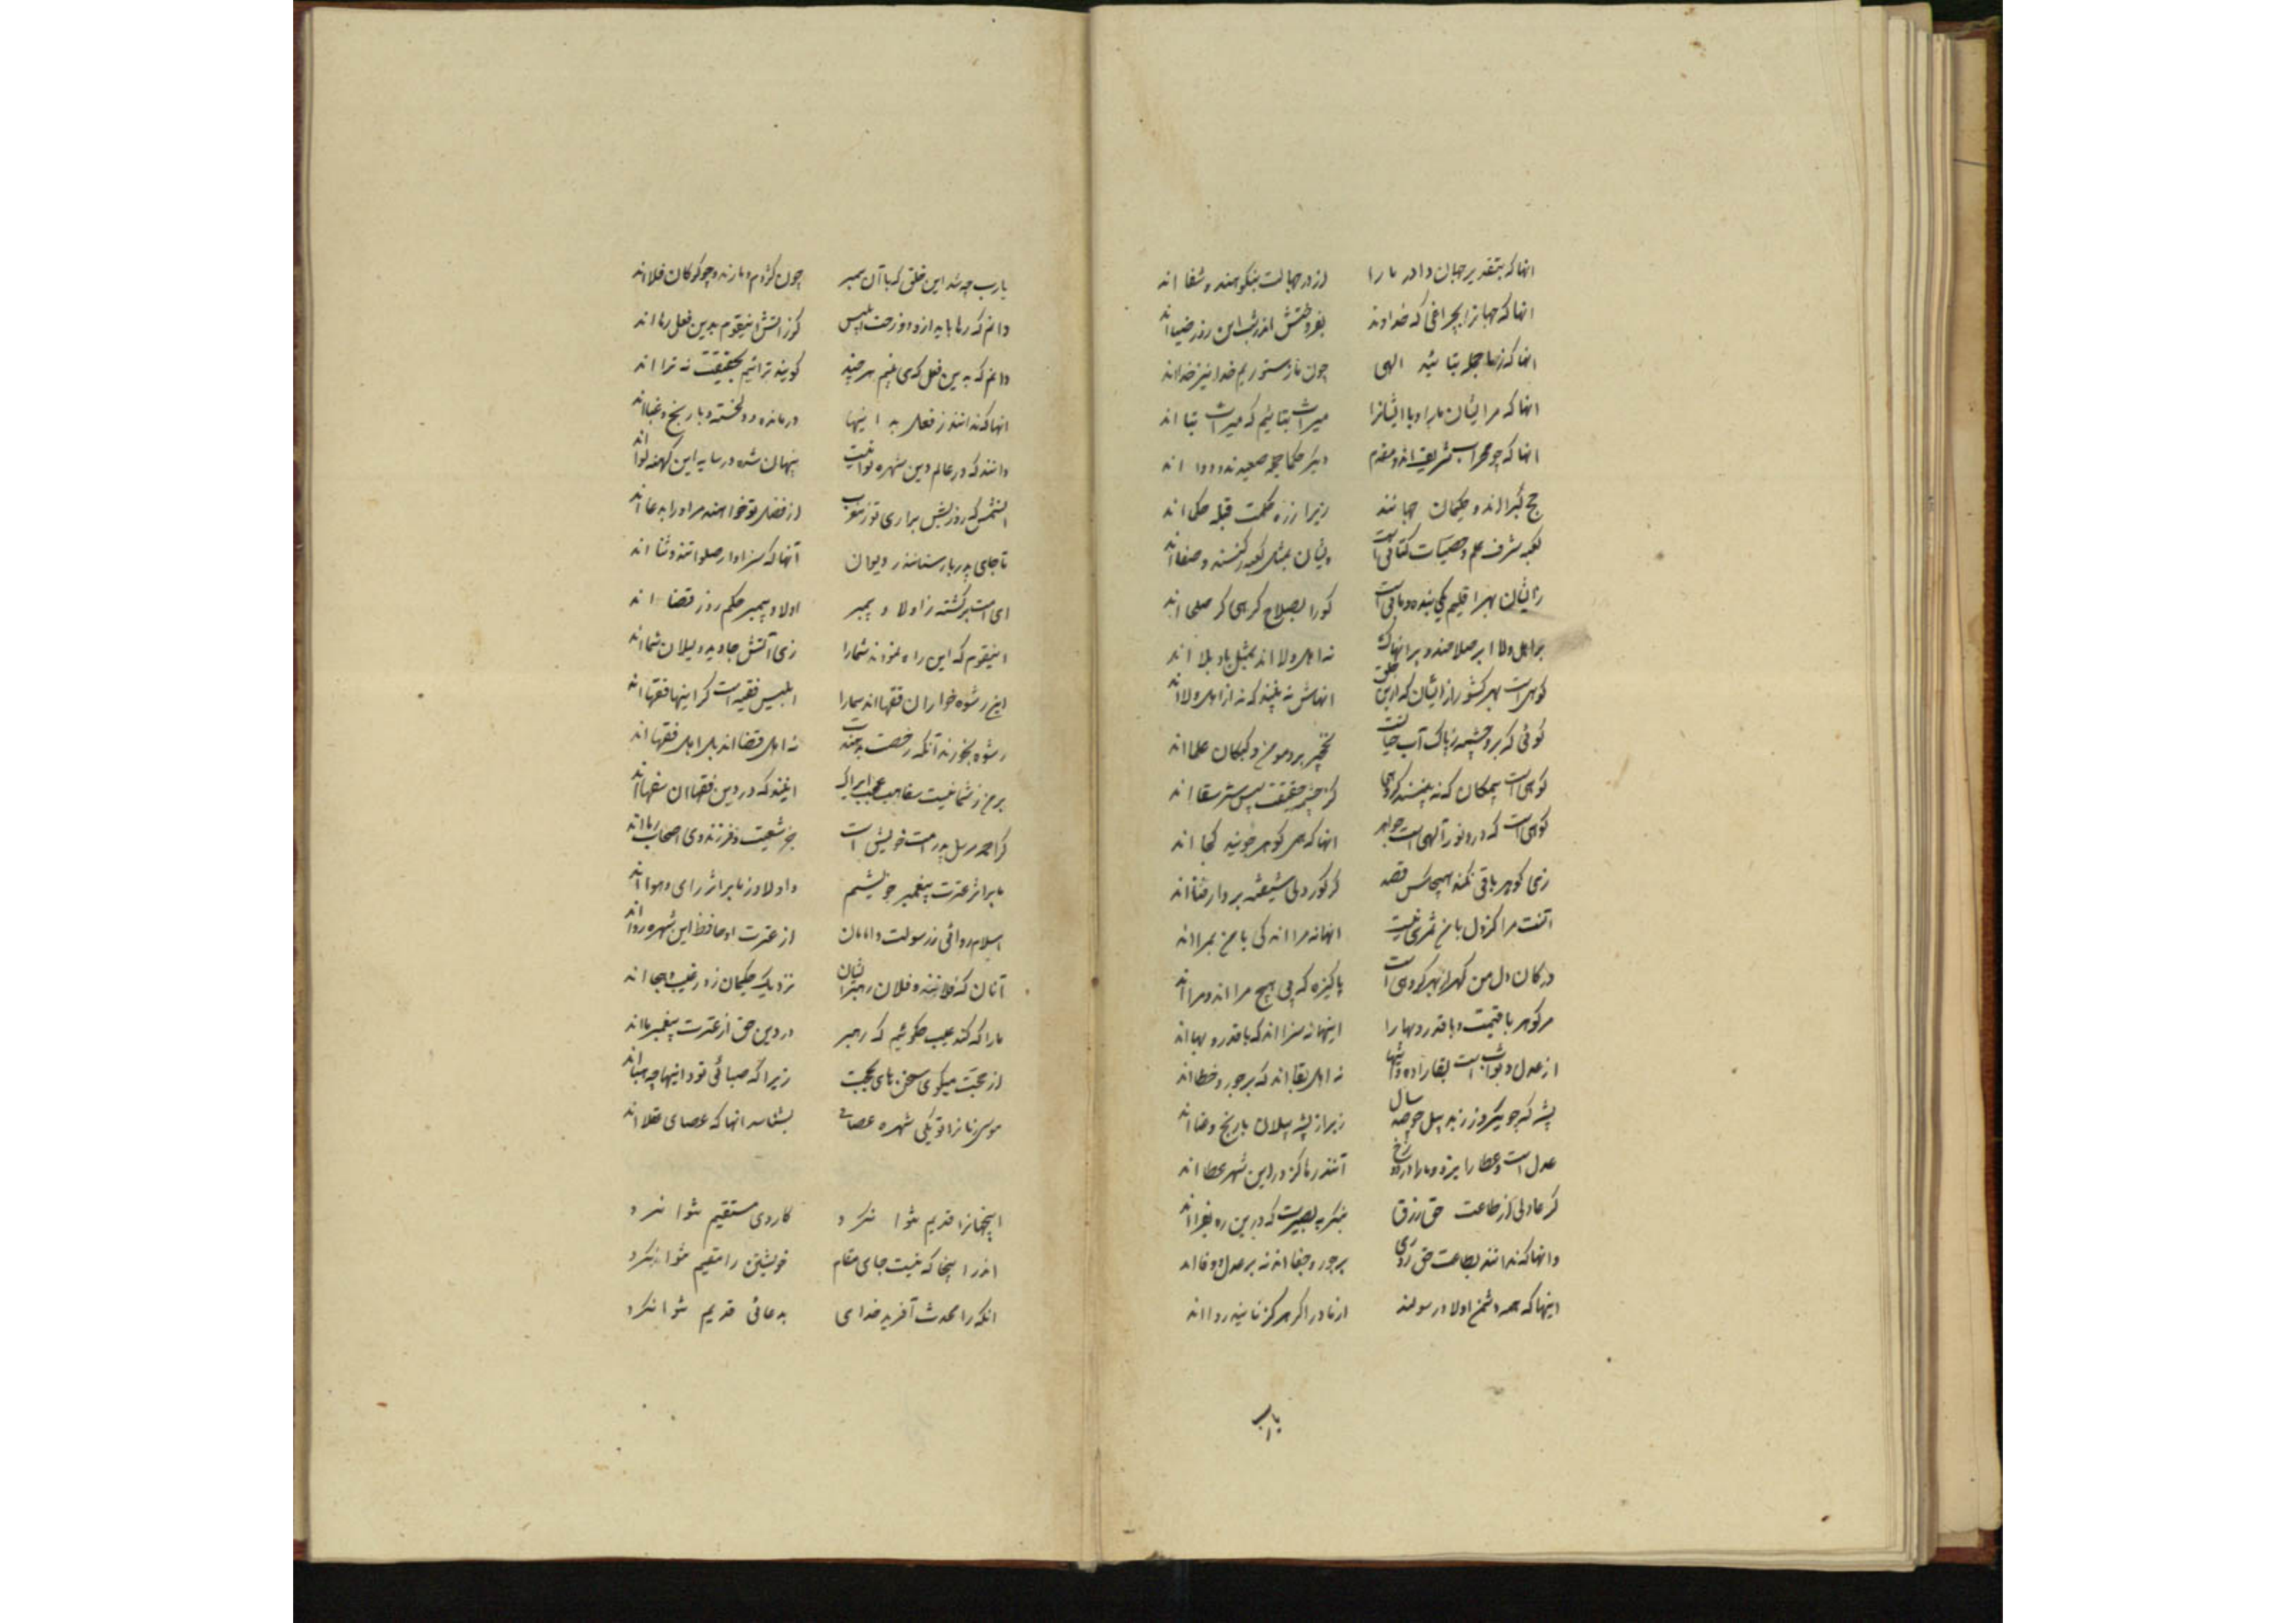 انها که بتقدیر جهان داور ما را از درد جهالت بنکو پند و شفا اند
انها که جهانرا بچراغی که خداوند بفروختش اندر شب این روز ضیا اند
انها که ز ما بتائید الهی چون ما ز ستوریم خدا نیز خدااند
انها که مر ایشان ما را و با ایشانرا میراث بتائیم که میراث بتا اند
انها که چو محراب شریف اند و مقدم دیکر حکما جمله صعیدند و دوا اند
حج کبرااند و حکیمان جهانند زیرا ز ره حکمت قبله حکما اند
کعبه شرف علم و خفیات کتابی است ویشان بمثل کعبه رکنند و صفا اند
ز ایشان بهر اقلیم یکی بنده و باقی است کورا بصلاح کرهی کر صلحا اند
بر اهل ولا ابر صلاحند و بر انها که نه اهل ولا اند بمثل باد بلا اند
کوهی است بهر کشور از ایشان که ازین خلق انهاش نه بینند که نه از اهل ولا اند
کوئی که برو چشمه پاک آب حیات است نخجیر برو مومن و کبکان علما اند
کوهی است بیمکان که نه بینند کروهی کز چشم حقیقت بپس ستر سقا اند
کوهی است که درو نور آلهی است جواهر انها که همی کوهر جویند کجا اند
زی کوهر باقی نکند هیچکس قصد کز کور دلی شیفته بر دار فنا اند
اتفت مرا کزول با من ثمری نیست انها نه مرااند که با من بمرااند
در کان دل من کهر از بهر کروهی است پاکیزه که بی هیچ مرا اند و مرا اند
مر کوهر با قیمت و با قدر و بها را اینها نه سزا اند که با قدر و بها اند
از عدل و ثواب است بقا زاده و اینها نه اهل بقا اند که بر جور و خطا اند
پشه که چو یکروز زید پیل چو صد سال زیرا ز پشه پیلان با رنج و عنا اند
عدل است و عطا را ایزد و ما را در دوزخ آنند رها کز در این شهره عطا اند
کر عادلی از طاعت حق رزق بنکر به بصیرت که درین ره بقرا اند
و انها که ندانند بطاعت حق روزی بر جور و جفا اند نه بر عدل و وفا اند
اینها که همه دشمن اولاد رسولند از مادر اکر هرکز نایند روا اند
یارب
یارب چه شد این خلق که با آن پیمبر چون کژدم و مارند و چو کرکان فلا اند
دانم که رها باید از دوزخ ابلیس کوز آتش اینقوم بدین فعل رها اند
دانم که بدین فعل که می بینم هر چند کویند تراایم بحقیقت نه ترا اند
انها که ندانند ز فعل بد اینها درمانده و دلخسته و با رنج و عنا اند
دانند که در عالم دین شهره لوائیست پنهان شده در سایه این کهنه لوا اند
ان شمس که روزیش براری تو ز مغرب از فضل تو خواهند مر او را بدعا اند
تا جای پدر باز ستانند ز دیوان آنها که سزاوار صلواتند و ثنا اند
ای امت برکشته ز اولاد پیمبر اولاد پیمبر حکم روز قضا اند
اینقوم که این راه نمودند شما را زی آتش جاوید دلیلان شما اند
این رشوه خواران فقها اند شما را ابلیس فقیه است کر اینها فقها اند
رشوه بخورند آنکه رخصت بدهندت نه اهل قضا اند بل اهل فقها اند
بر من ز شما نیست سفاهت عجب ایراک اینند که در دین فقها ان سفها اند
کر احمد مرسل پدر امت خویش است جز شیعت و فرزند وی اصحاب ریا اند
ما بر اثر عترت پیغمبر خویشیم و اولاد زنا بر اثر رای و هوا اند
اسلام ردائی ز رسولست و امامان از عترت او حافظ این شهره ردا اند
آنان که فلانند و فلان رهبرایشان نزدیک حکیمان ز در عیب و هجا اند
ما را که کند عیب چکوئیم که رهبر در دین حق از عترت پیغمبر ما اند
از حجت میکوی سخنهای بحجت زیرا که صبائی تو و اینها چه هبا اند
موسی زمانرا تو یکی شهره عصائی بشناسد انها که عصای عقلا اند
اینجهانرا قدیم نتوان کرد کار وی مستقیم نتوان کرد
اندر اینجا که نیست جای مقام خویشتن را مقیم نتوان کرد
انکه را محدث آفرید خدای به دعائی قدیم نتوان کرد